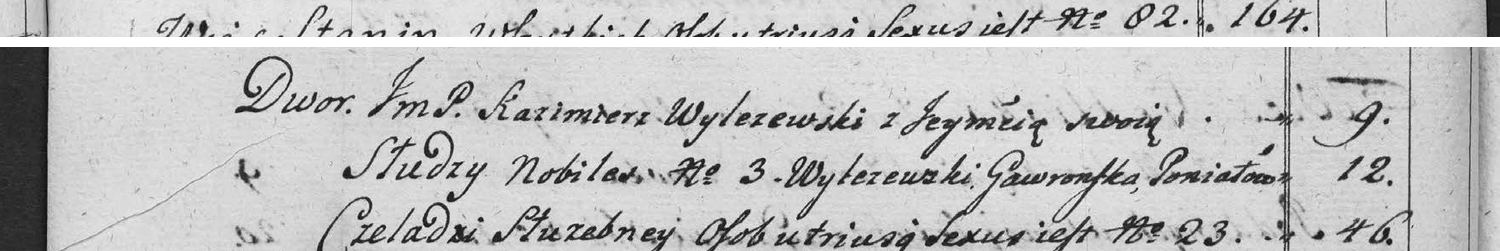 Wsi Stanin Wszystkich Osob utriusq Sexus iest No 82. 164.
Dwor. Jm P. Kazimierz Wylezewski z Jeymcią swoią 9.
Słudzy Nobiles No 3. Wylezewski, Gawronska, Poniatow 12.
Czeladzi Służebney Osob utriusq Sexus iest No 23. 46.